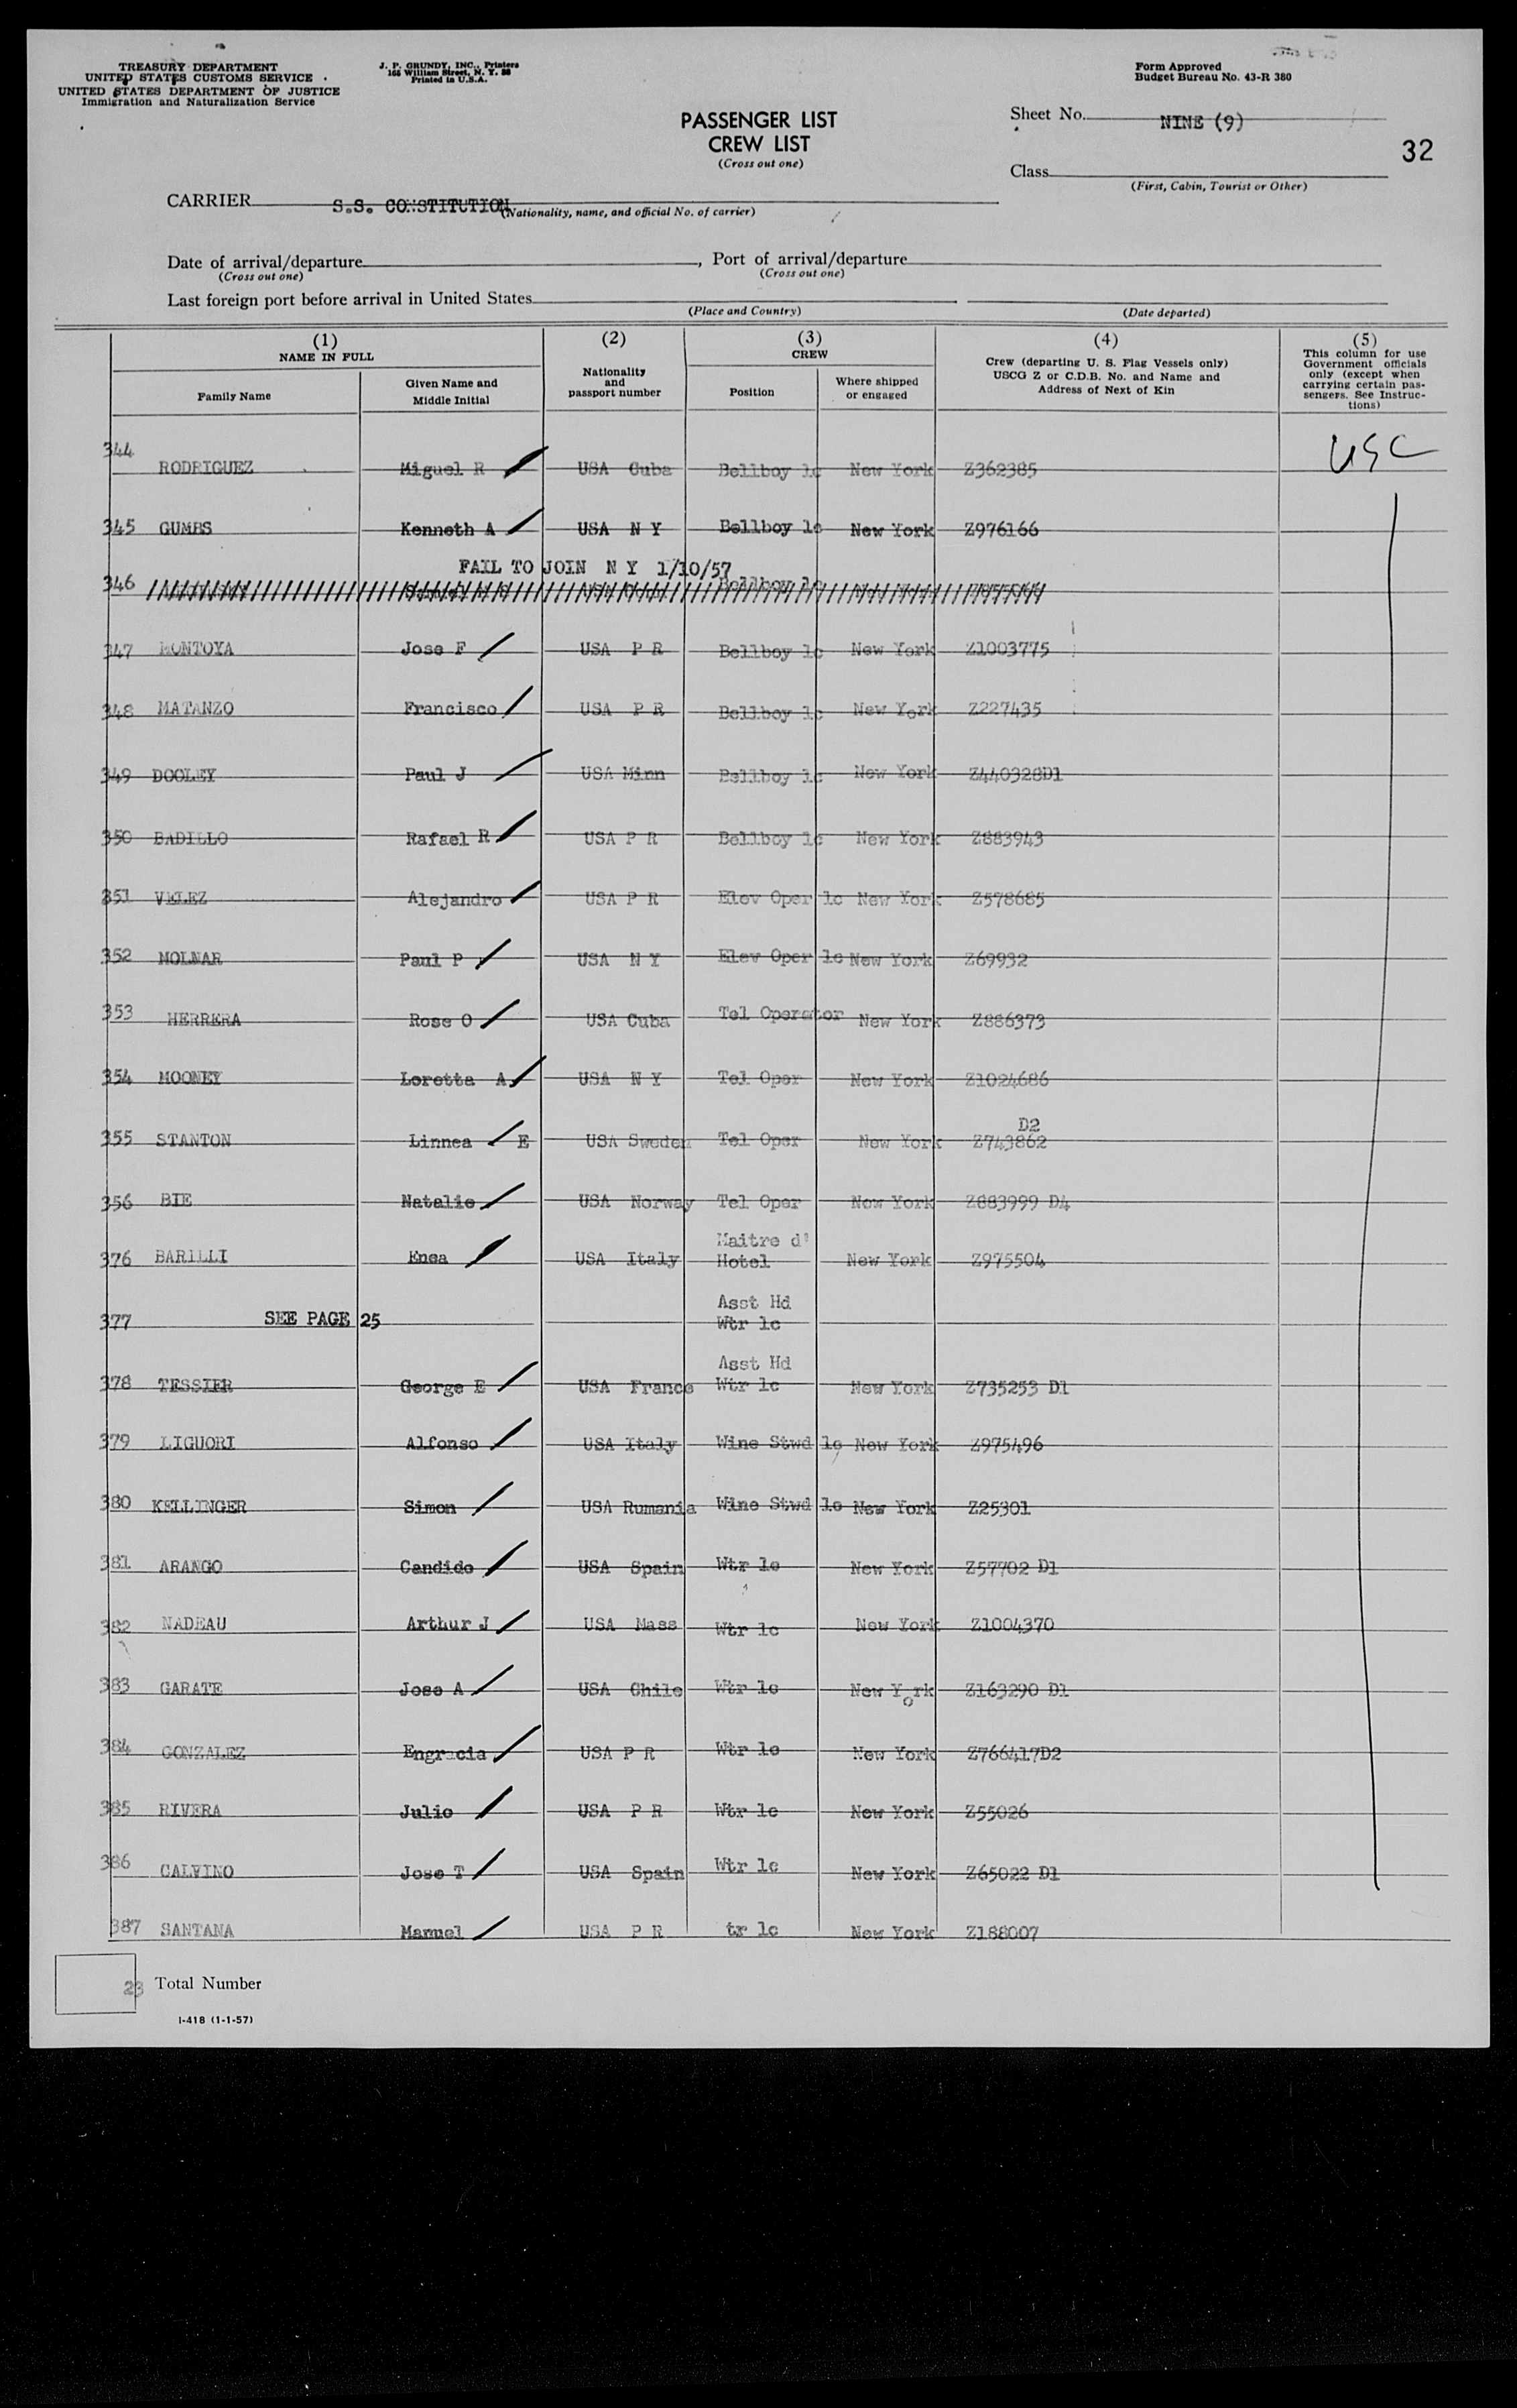 TREASURY DEPARTMENT
UNITED STATES CUSTOMS SERVICE
UNITED STATES DEPARTMENT OF JUSTICE
Immigration and Naturalization Service
J. P. GRUNDY, INC., Printers
166 William Street, N. Y. 38
Printed in U.S.A.
Form Approved
Budget Bureau No. 43-R 380
PASSENGER LIST
CREW LIST
(Cross out one)
Sheet No. NINE (9)
32
Class
(First, Cabin, Tourist or Other)
CARRIER S.S. CONSTITUTION
(Nationality, name, and official No. of carrier)
Date of arrival/departure , Port of arrival/departure
(Cross out one) (Cross out one)
Last foreign port before arrival in United States
(Place and Country) (Date departed)
(1) NAME IN FULL
Family Name
Given Name and Middle Initial
(2)
Nationality and passport number
(3) CREW
Position
Where shipped or engaged
(4)
Crew (departing U. S. Flag Vessels only)
USCG Z or C.D.B. No. and Name and
Address of Next of Kin
(5)
This column for use
Government officials
only (except when
carrying certain pas-
sengers. See Instruc-
tions)
344 RODRIGUEZ Miguel R USA Cuba Bellboy 1c New York Z362385 USC
345 GUMBS Kenneth A USA N Y Bellboy 1c New York Z976166
FAIL TO JOIN N Y 1/10/57
346 Bellboy 1c
347 MONTOYA Jose F USA P R Bellboy 1c New York Z1003775
348 MATANZO Francisco USA P R Bellboy 1c New York Z227435
349 DOOLEY Paul J USA Minn Bellboy 1c New York Z440328D1
350 BADILLO Rafael R USA P R Bellboy 1c New York Z883943
351 VELEZ Alejandro USA P R Elev Oper 1c New York Z578685
352 MOLNAR Paul P USA N Y Elev Oper 1c New York Z69932
353 HERRERA Rose O USA Cuba Tel Operator New York Z886373
354 MOONEY Loretta A USA N Y Tel Oper New York Z1024686
355 STANTON Linnea E USA Sweden Tel Oper New York Z743862 D2
356 BIE Natalie USA Norway Tel Oper New York Z883999 D4
376 BARILLI Enea USA Italy Maitre d' Hotel New York Z975504
377 SEE PAGE 25 Asst Hd Wtr 1c
378 TESSIER George E USA France Asst Hd Wtr 1c New York Z735253 D1
379 LIGUORI Alfonso USA Italy Wine Stwd 1c New York Z975496
380 KELLINGER Simon USA Rumania Wine Stwd 1c New York Z25301
381 ARANGO Candido USA Spain Wtr 1c New York Z57702 D1
382 NADEAU Arthur J USA Mass Wtr 1c New York Z1004370
383 GARATE Jose A USA Chile Wtr 1c New York Z163290 D1
384 GONZALEZ Engracia USA P R Wtr 1c New York Z766417D2
385 RIVERA Julio USA P R Wtr 1c New York Z55026
386 CALVINO Jose T USA Spain Wtr 1c New York Z65022 D1
387 SANTANA Manuel USA P R tr 1c New York Z188007
23 Total Number
I-418 (1-1-57)